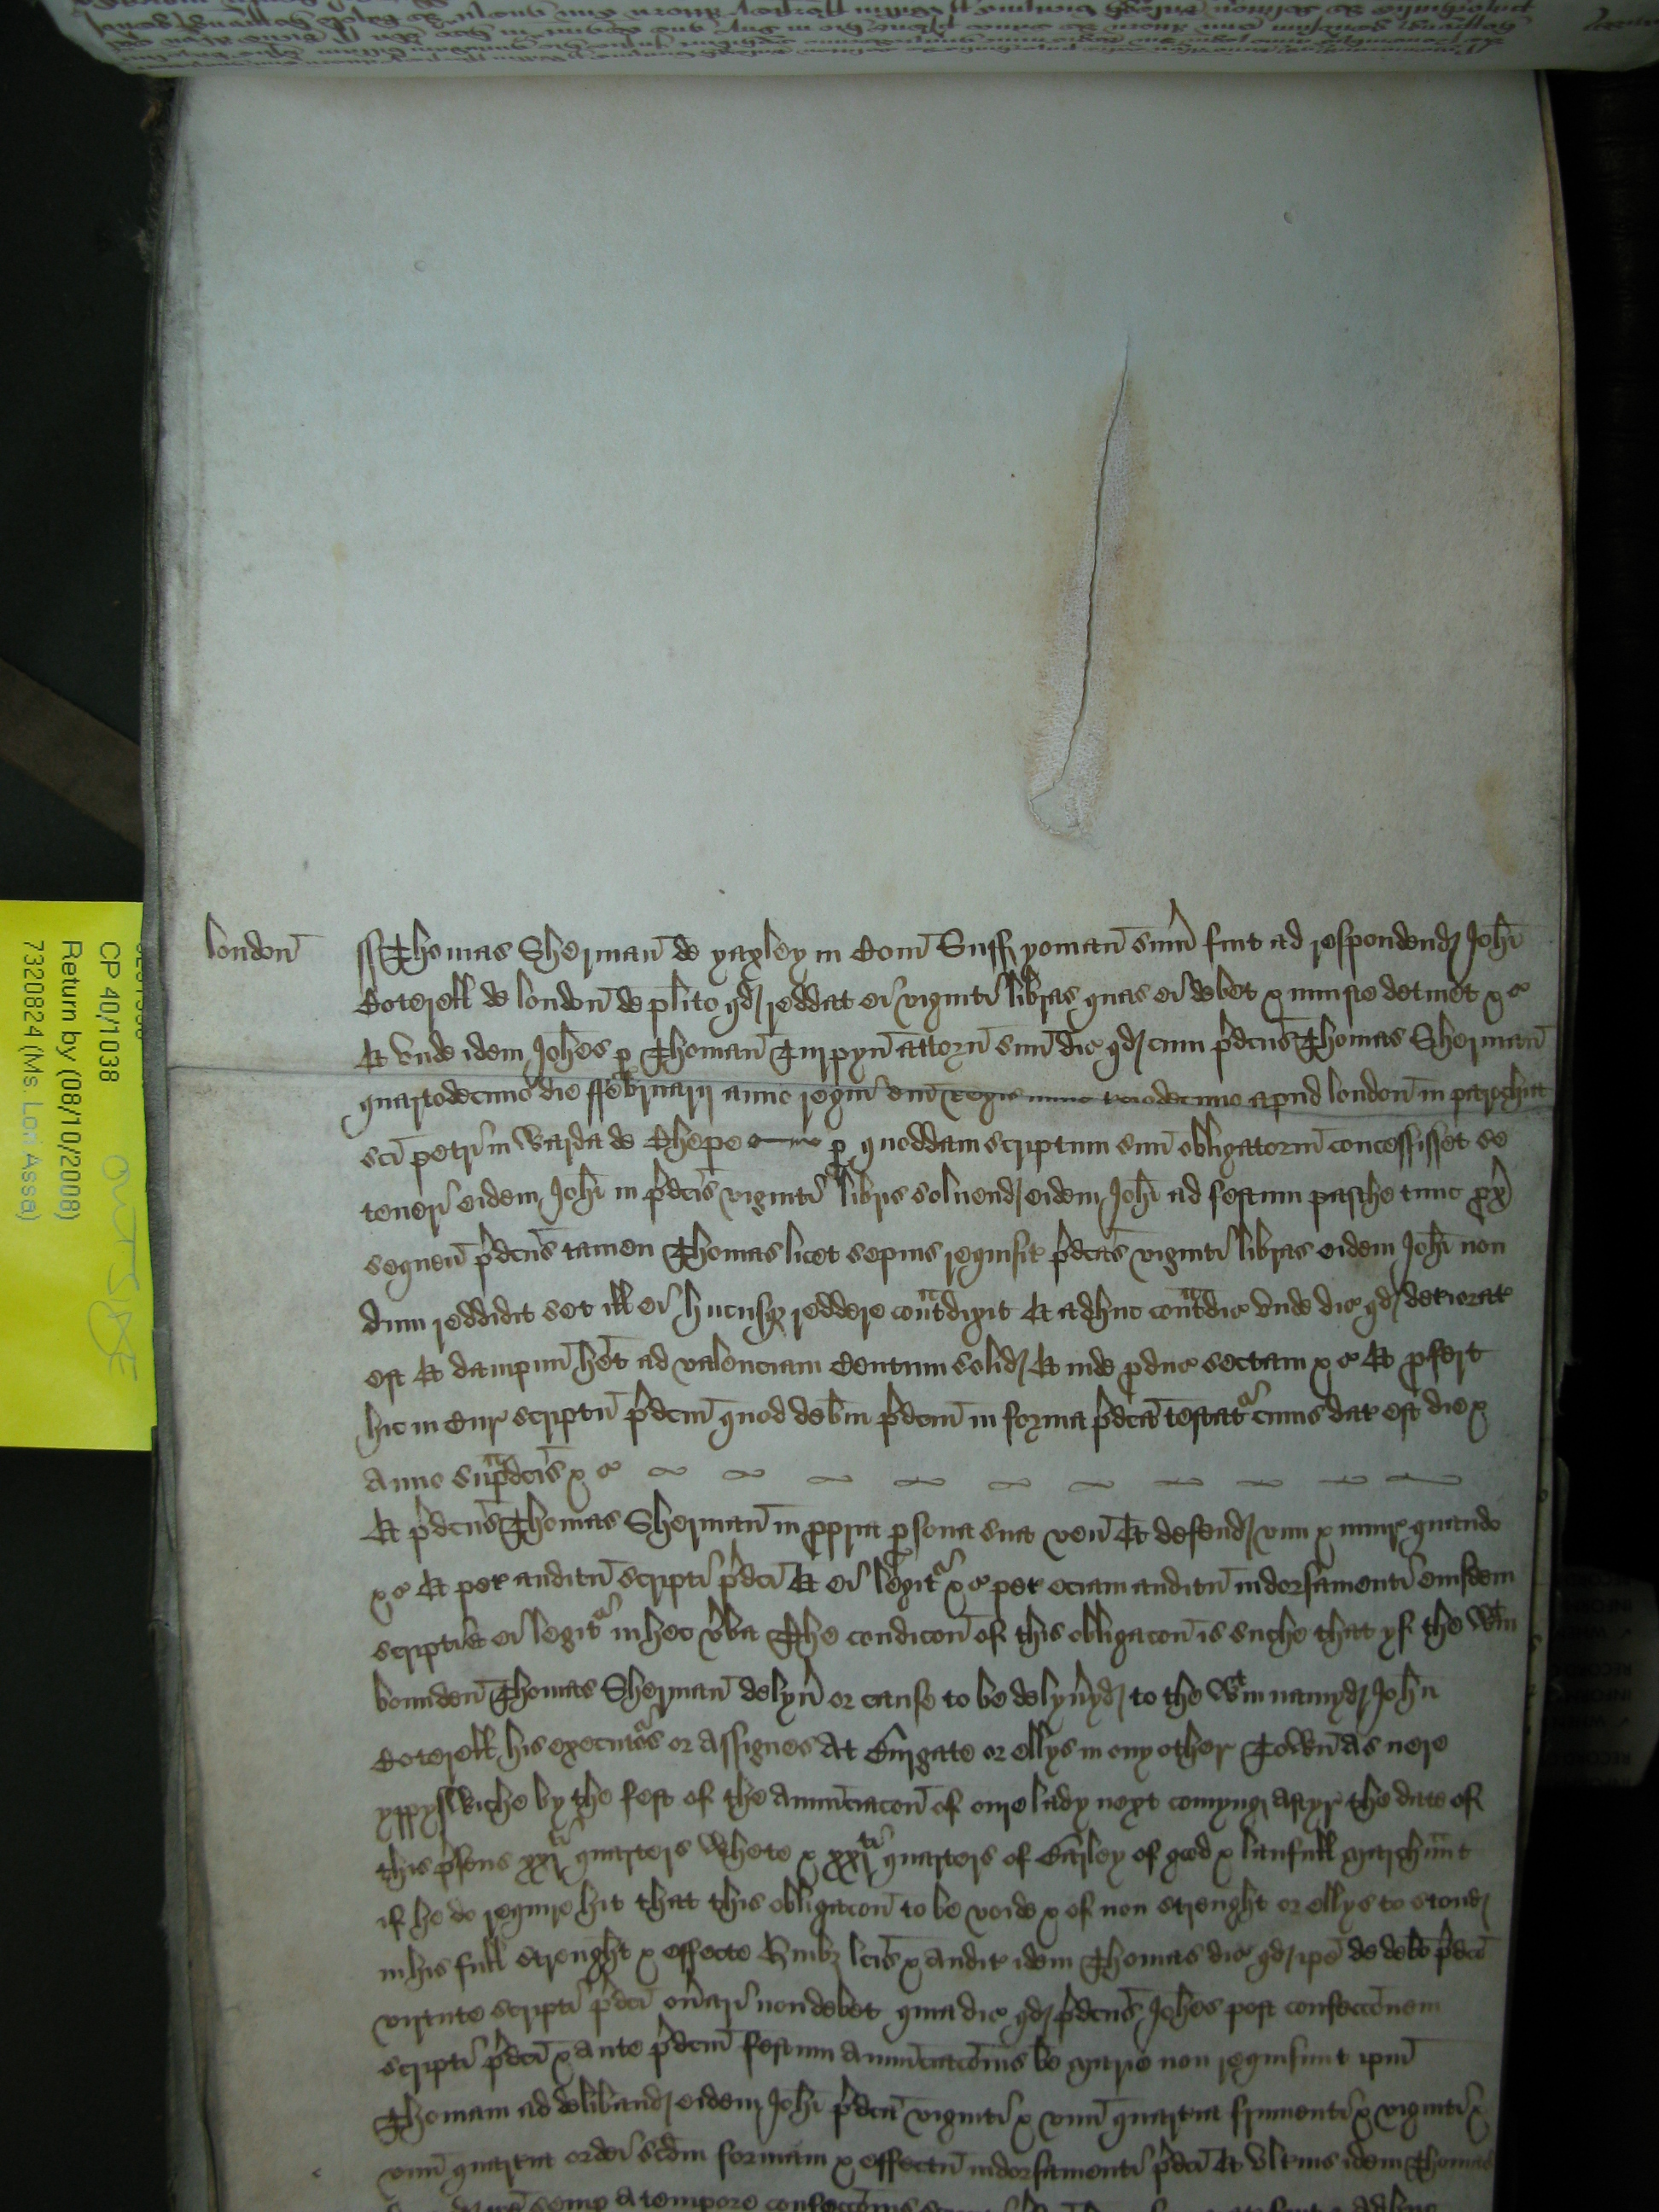 london̄ ss Thomas Sherman̄ de yaxley in Com̄ Suff yoman̄ sum̄ fuit ad respondend Joh̄i
Coterell de london̄ de pl̄ito qd reddat ei viginti libras quas ei debet & iniuste detinet &c
Et vnde idem Joh̄es p Thoman̄ Turpyn̄ attorn̄ suū dic qd cum p̄dcus Thomas Sherman̄
quartodecimo die ffebruarij anno regni dn̄i Regis nunc apud london̄ in parochia
sci petri in Warda de Chepe p quoddam scriptum suū obligatoriū concessisset se
teneri eidem Joh̄i in p̄dcis viginti libris soluend eidem Joh̄i ad festum pasche tunc px̄
sequen̄ p̄dcus tamen Thomas licet sepius requisit p̄dcas viginti libras eidem Joh̄i non
dum reddidit set ill ei hucusq reddere contadixit Et adhuc contadic vnde dic qd deteriorat
est Et dampnū h̄et ad valenciam Centum solid Et inde pduc sectam &c Et pfert
hic in Cur scriptū p̄dcm̄ quod debm̄ p̄dcm̄ in forma p̄dca testatr cuius dat est die &
Anno supadcis &c
Et p̄dcus Thomas Sherman̄ in ppria psona sua ven̄ Et defend vim & iniur quando
&c Et pet auditū scripti p̄dci Et ei legitr &c pet eciam auditū indorsamenti eiusdem
scripti & ei legitr in hec vba The condicon̄ of this obligacon̄ is suche that yf the wtin
bounden̄ Thomas Sherman̄ delyu or cause to be delyuyd to the wtin namyd John
Coterell his executors or assignes At or ellys in ony other Town̄ as nere
yppyswiche by the fest of the Annūciacon̄ of oure lady next comyng aftyr the date of
this psens xxjti quarters Whete & xxjti quarters of Barley of good & laufull marchānt
if he do require hit that this obligacon̄ to be voide & of non strenght or ellys to stond
in his full strenght & effecte Quibz lcis & audit idem Thomas dic qd ipe de debo p̄dco
virtute scripti p̄dci on̄ari non debet quia dic qd p̄dcus Joh̄es post confeccōnem
scripti p̄dci & ante p̄dcm̄ festum Annūciacōnis be marie non requisiuit ipm̄
Thomam ad deliband eidem Joh̄i p̄dca viginti & vnū quarteria frumenti & viginti &
vnū quarteria ordei scdm formam & effectū indorsamenti p̄dci Et vlterius idem Thomas
semp a tempore confeccōnis
CP 40/1038
Return by (08/10/2008)
7320824 (Ms. Lori Assa)
OUTSIZE